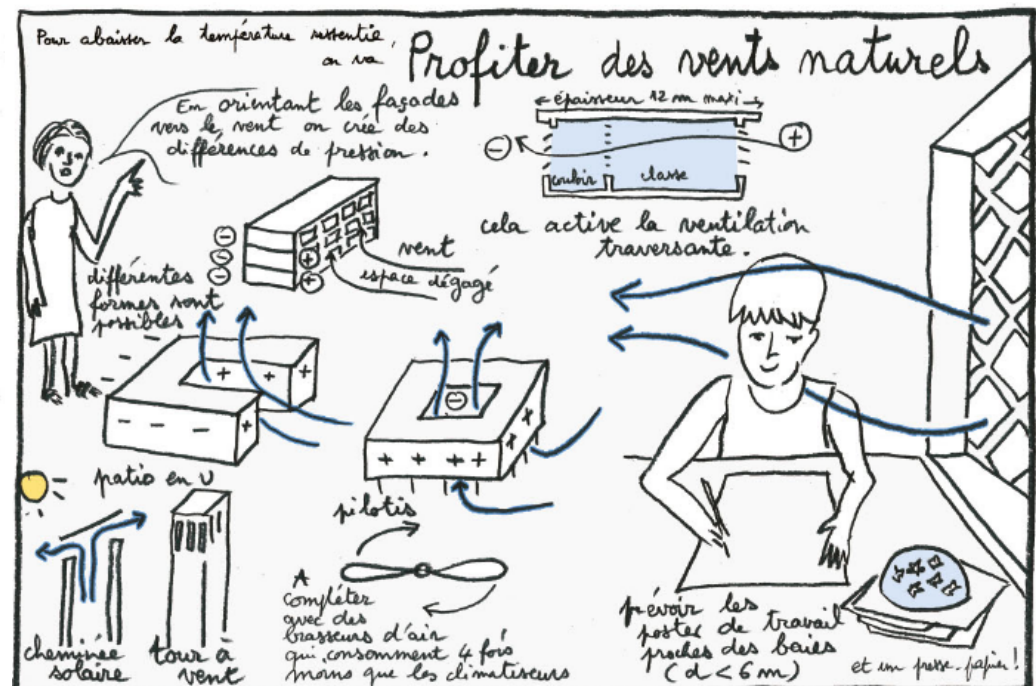 Pour abaisser la température ressentie,
on va
Profiter des vents naturels
En orientant les façades
vers le vent on crée des
différences de pression.
← épaisseur 12 m maxi →
couloir
classe
cela active la ventilation
traversante.
vent
espace dégagé
différentes
formes sont
possibles
patio en U
pilotis
cheminée
solaire
tour à
vent
A
compléter
avec des
brasseurs d'air
qui consomment 4 fois
moins que les climatiseurs
prévoir les
postes de travail
proches des baies
(d < 6 m)
et un presse-papier !